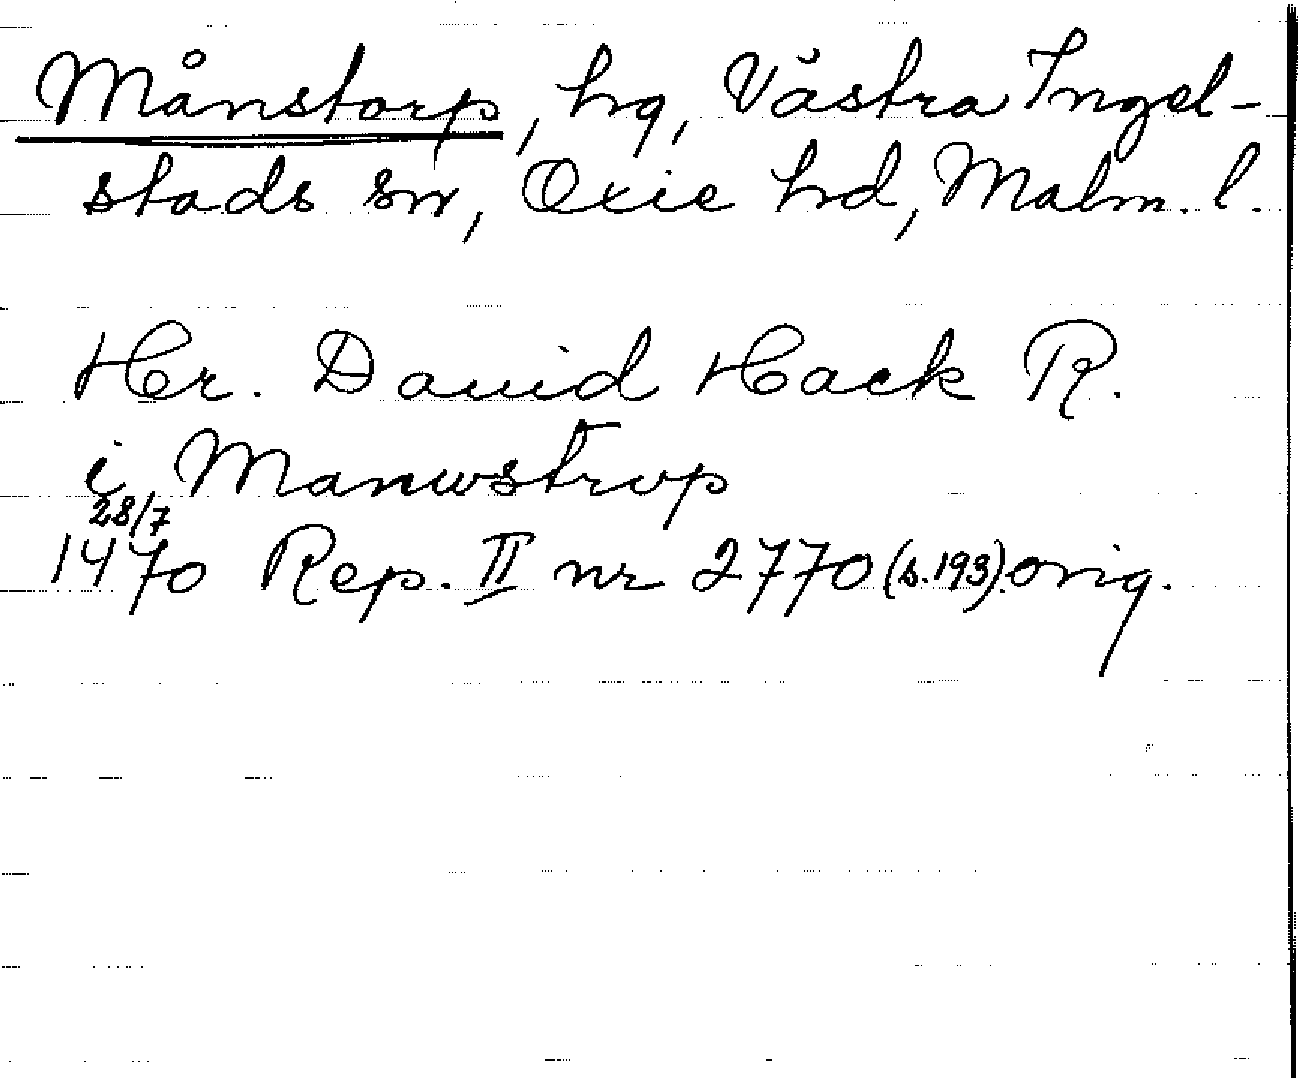 Månstorp, hg, Västra Ingel-
stads sn, Oxie hd, Malm. l.
Hr. Dauid Hack R.
i Manwstrvp
28/7
1470 Rep. II nr 2770 (s. 193). orig.